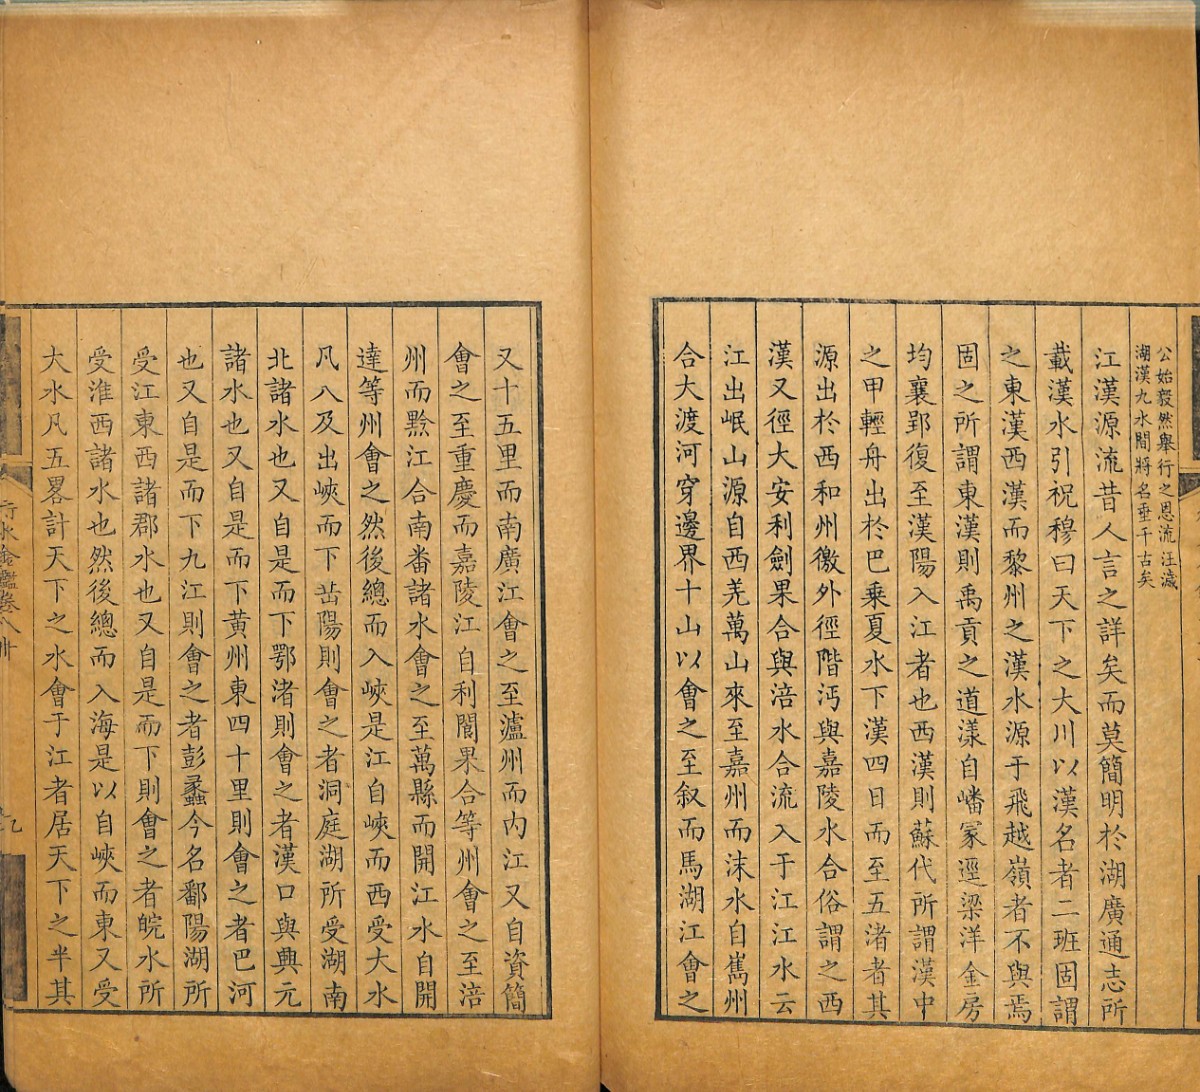 公始毅然舉行之恩流汪濊
湖漢九水間將名垂千古矣
江漢源流昔人言之詳矣而莫簡明於湖廣通志所
載漢水引祝穆曰天下之大川以漢名者二班固謂
之東漢西漢而黎州之漢水源于飛越嶺者不與焉
固之所謂東漢則禹貢之道漾自嶓冢逕梁洋金房
均襄郢復至漢陽入江者也西漢則蘇代所謂漢中
之甲輕舟出於巴乘夏水下漢四日而至五渚者其
源出於西和州徼外徑階沔與嘉陵水合俗謂之西
漢又徑大安利劍果合與涪水合流入于江江水云
江出岷山源自西羌萬山來至嘉州而沫水自嶲州
合大渡河穿邊界十山以會之至叙而馬湖江會之
又十五里而南廣江會之至瀘州而内江又自資簡
會之至重慶而嘉陵江自利閬果合等州會之至涪
州而黔江合南番諸水會之至萬縣而開江水自開
達等州會之然後總而入峽是江自峽而西受大水
凡八及出峽而下岳陽則會之者洞庭湖所受湖南
北諸水也又自是而下鄂渚則會之者漢口與興元
諸水也又自是而下黄州東四十里則會之者巴河
也又自是而下九江則會之者彭蠡今名鄱陽湖所
受江東西諸郡水也又自是而下則會之者皖水所
受淮西諸水也然後總而入海是以自峽而東又受
大水凡五畧計天下之水會于江者居天下之半其
行水金鑑卷八十